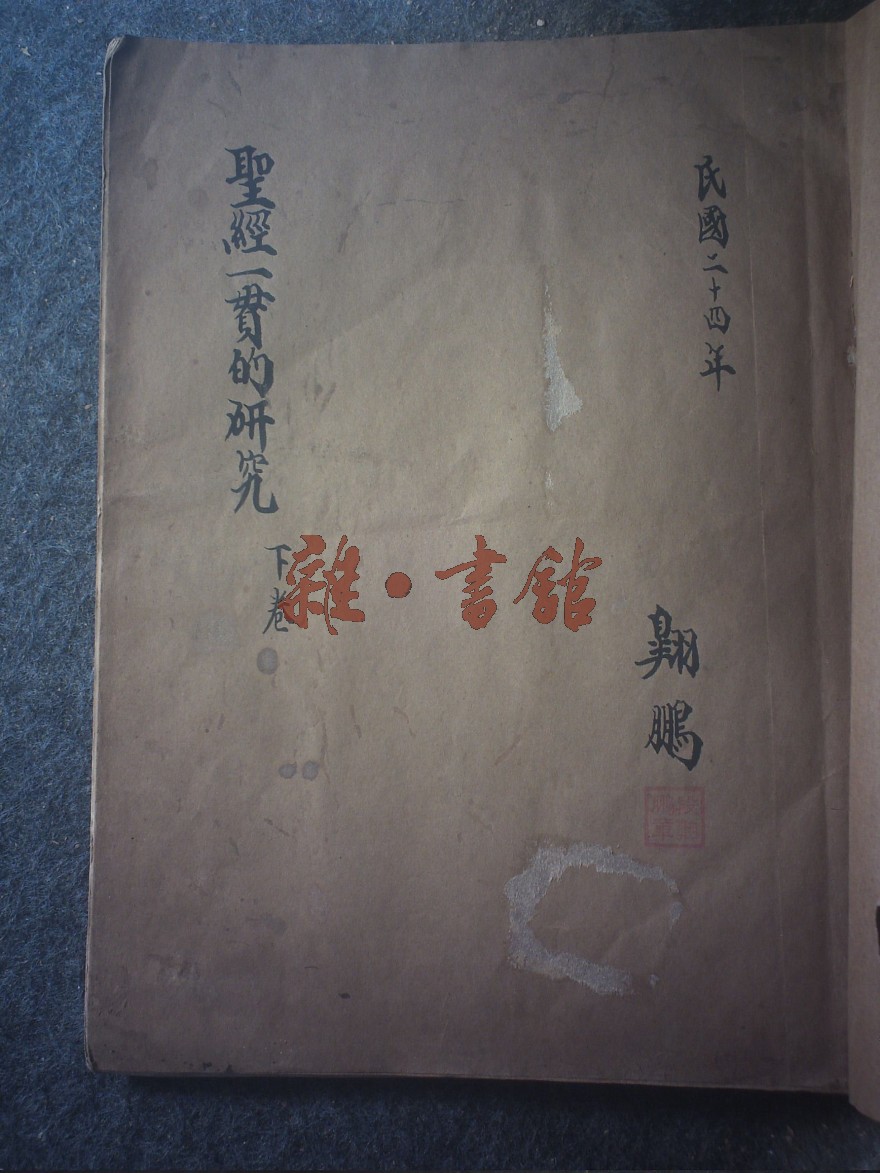 民國二十四年
翺鵬
聖經一貫的研究
下卷
雜·書館